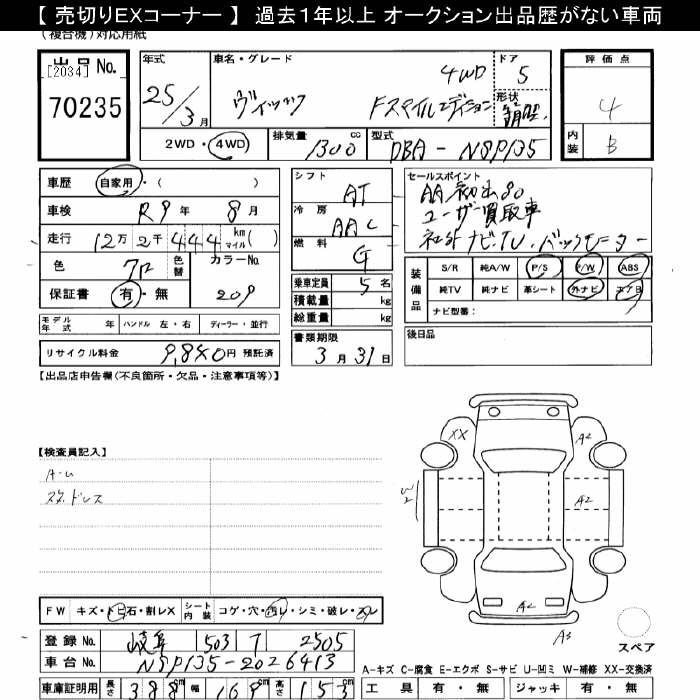 【 売切りEXコーナー 】 過去1年以上 オークション出品歴がない車両
(複合機)対応用紙
出品 No.
[2034]
70235
年式
25/3月
車名・グレード
4WD
ヴィッツ Fスマイルエディション
ドア
5
形状
評価点
4
内装
B
2WD・4WD
排気量
1300 cc
型式
DBA - NSP135
車歴 自家用・( )
車検 R9年 8月
走行 12万 2千 444 km マイル( )
色 クロ 色替
カラーNo.
209
保証書 有・無
シフト
AT
冷房
AAC
燃料
G
乗車定員 5 名
積載量 kg
総重量 kg
書類期限
3月31日
セールスポイント
AA初出80
ユーザー買取車
社外ナビ.TV.バックモニター
装備品
S/R 純A/W P/S P/W ABS
純TV 純ナビ 革シート 外ナビ エアB
ナビ型番:
後日品
モデル年式 年 ハンドル 左・右 ディーラー・並行
リサイクル料金 9,840円 預託済
【出品店申告欄(不良箇所・欠品・注意事項等)】
【検査員記入】
A-U
スタッドレス
XX
A2
W2
A2
A2
A3
スペア
FW キズ・トビ石・割レX
シート内装 コゲ・穴・汚レ・シミ・破レ・スレ
登録 No. 岐阜 503 7 2505
車台 No. NSP135-2026413
A-キズ C-腐食 E-エクボ S-サビ U-凹ミ W-補修 XX-交換済
車庫証明用 長さ 388 cm 幅 169 cm 高さ 153 cm
工具 有・無 ジャッキ 有・無